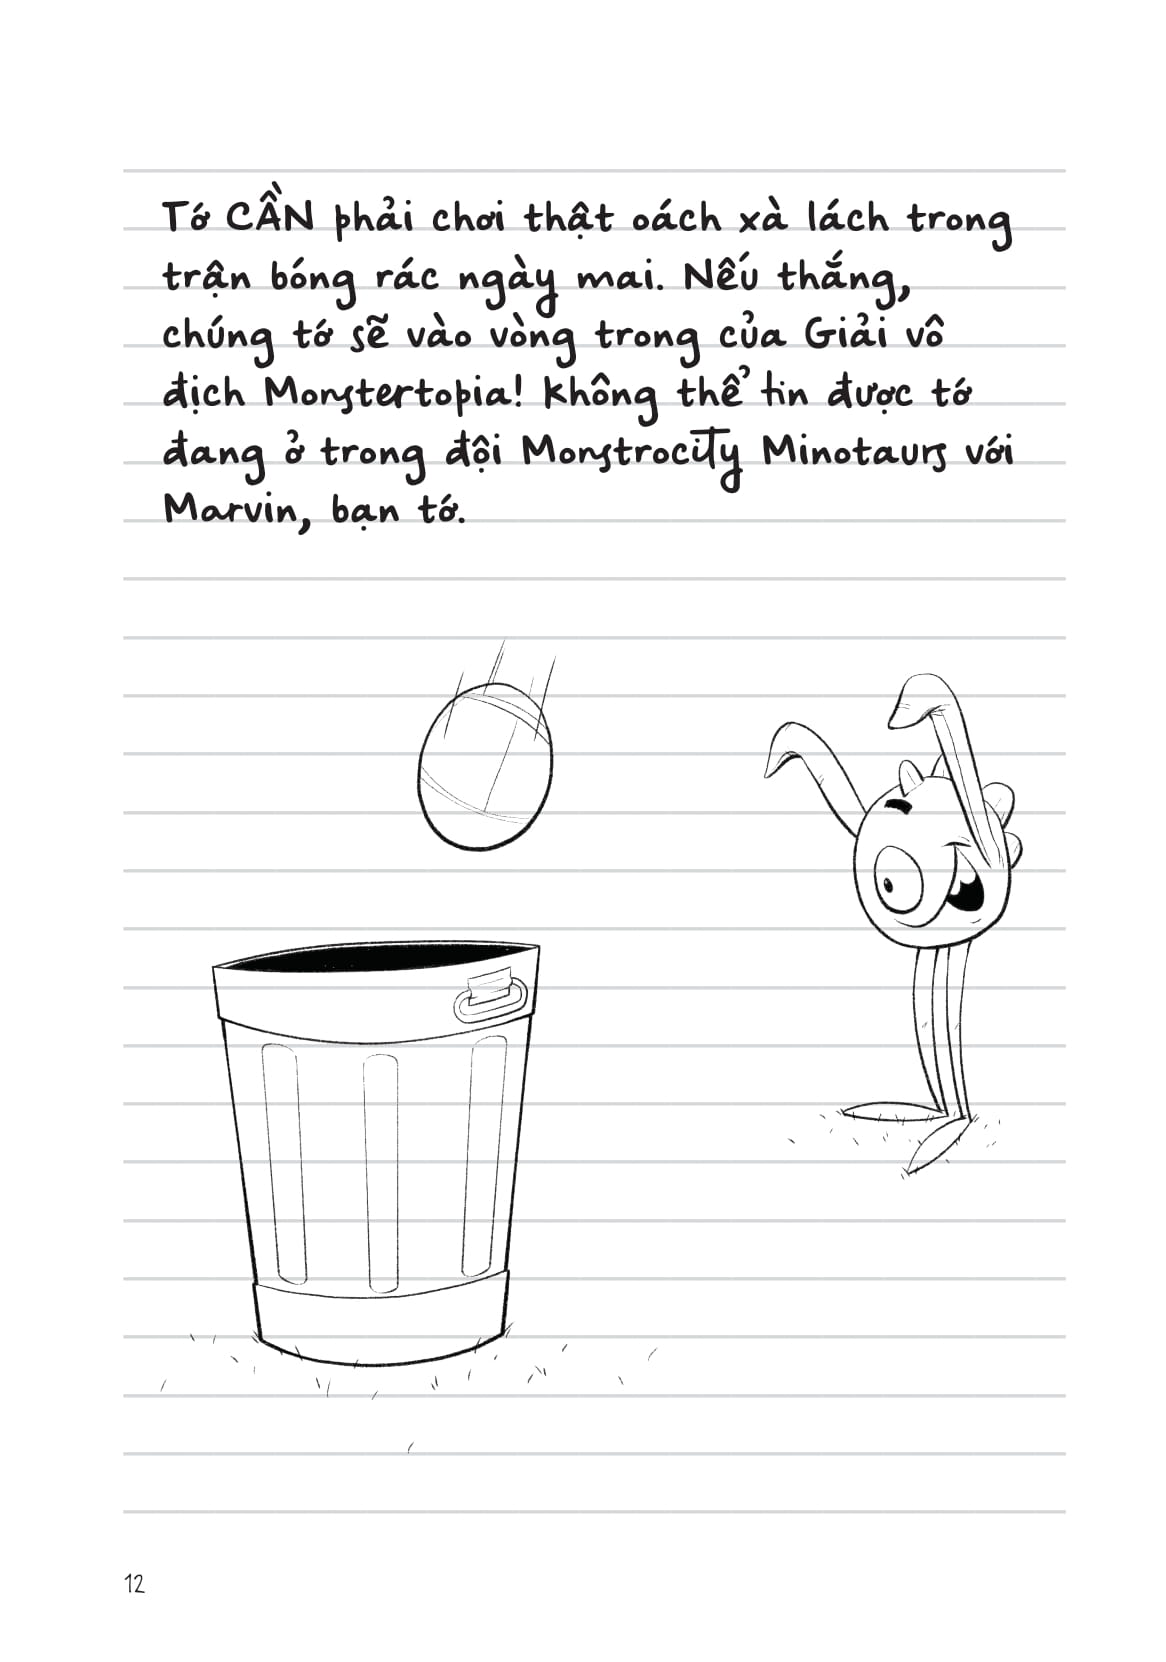 Tớ CẦN phải chơi thật oách xà lách trong
trận bóng rác ngày mai. Nếu thắng,
chúng tớ sẽ vào vòng trong của Giải vô
địch Monstertopia! Không thể tin được tớ
đang ở trong đội Monstrocity Minotaurs với
Marvin, bạn tớ.
12